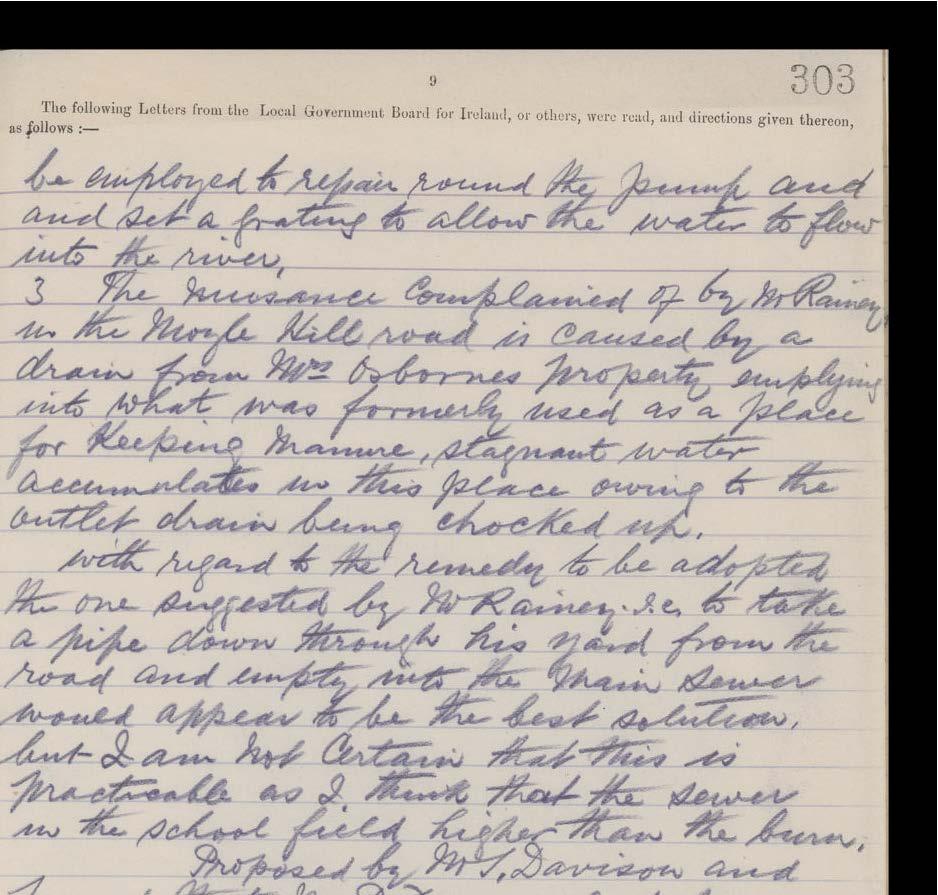 9
303
The following Letters from the Local Government Board for Ireland, or others, were read, and directions given thereon,
as follows :—
be employed to repair round the pump and
and set a grating to allow the water to flow
into the river,
3 The nuisance Complained of by Mr Rainey
in the Moyle Hill road is caused by a
drain from Mrs Osbornes property emptying
into what was formerly used as a place
for Keeping Manure, stagnant water
accumulates in this place owing to the
outlet drain being chocked up.
with regard to the remedy to be adopted
the one suggested by Mr Rainey. I.e. to take
a pipe down through his yard from the
road and empty into the Main Sewer
would appear to be the best solution,
but I am not Certain that this is
practicable as I think that the sewer
in the school field higher than the burn.
Proposed by Mr S. Davison and